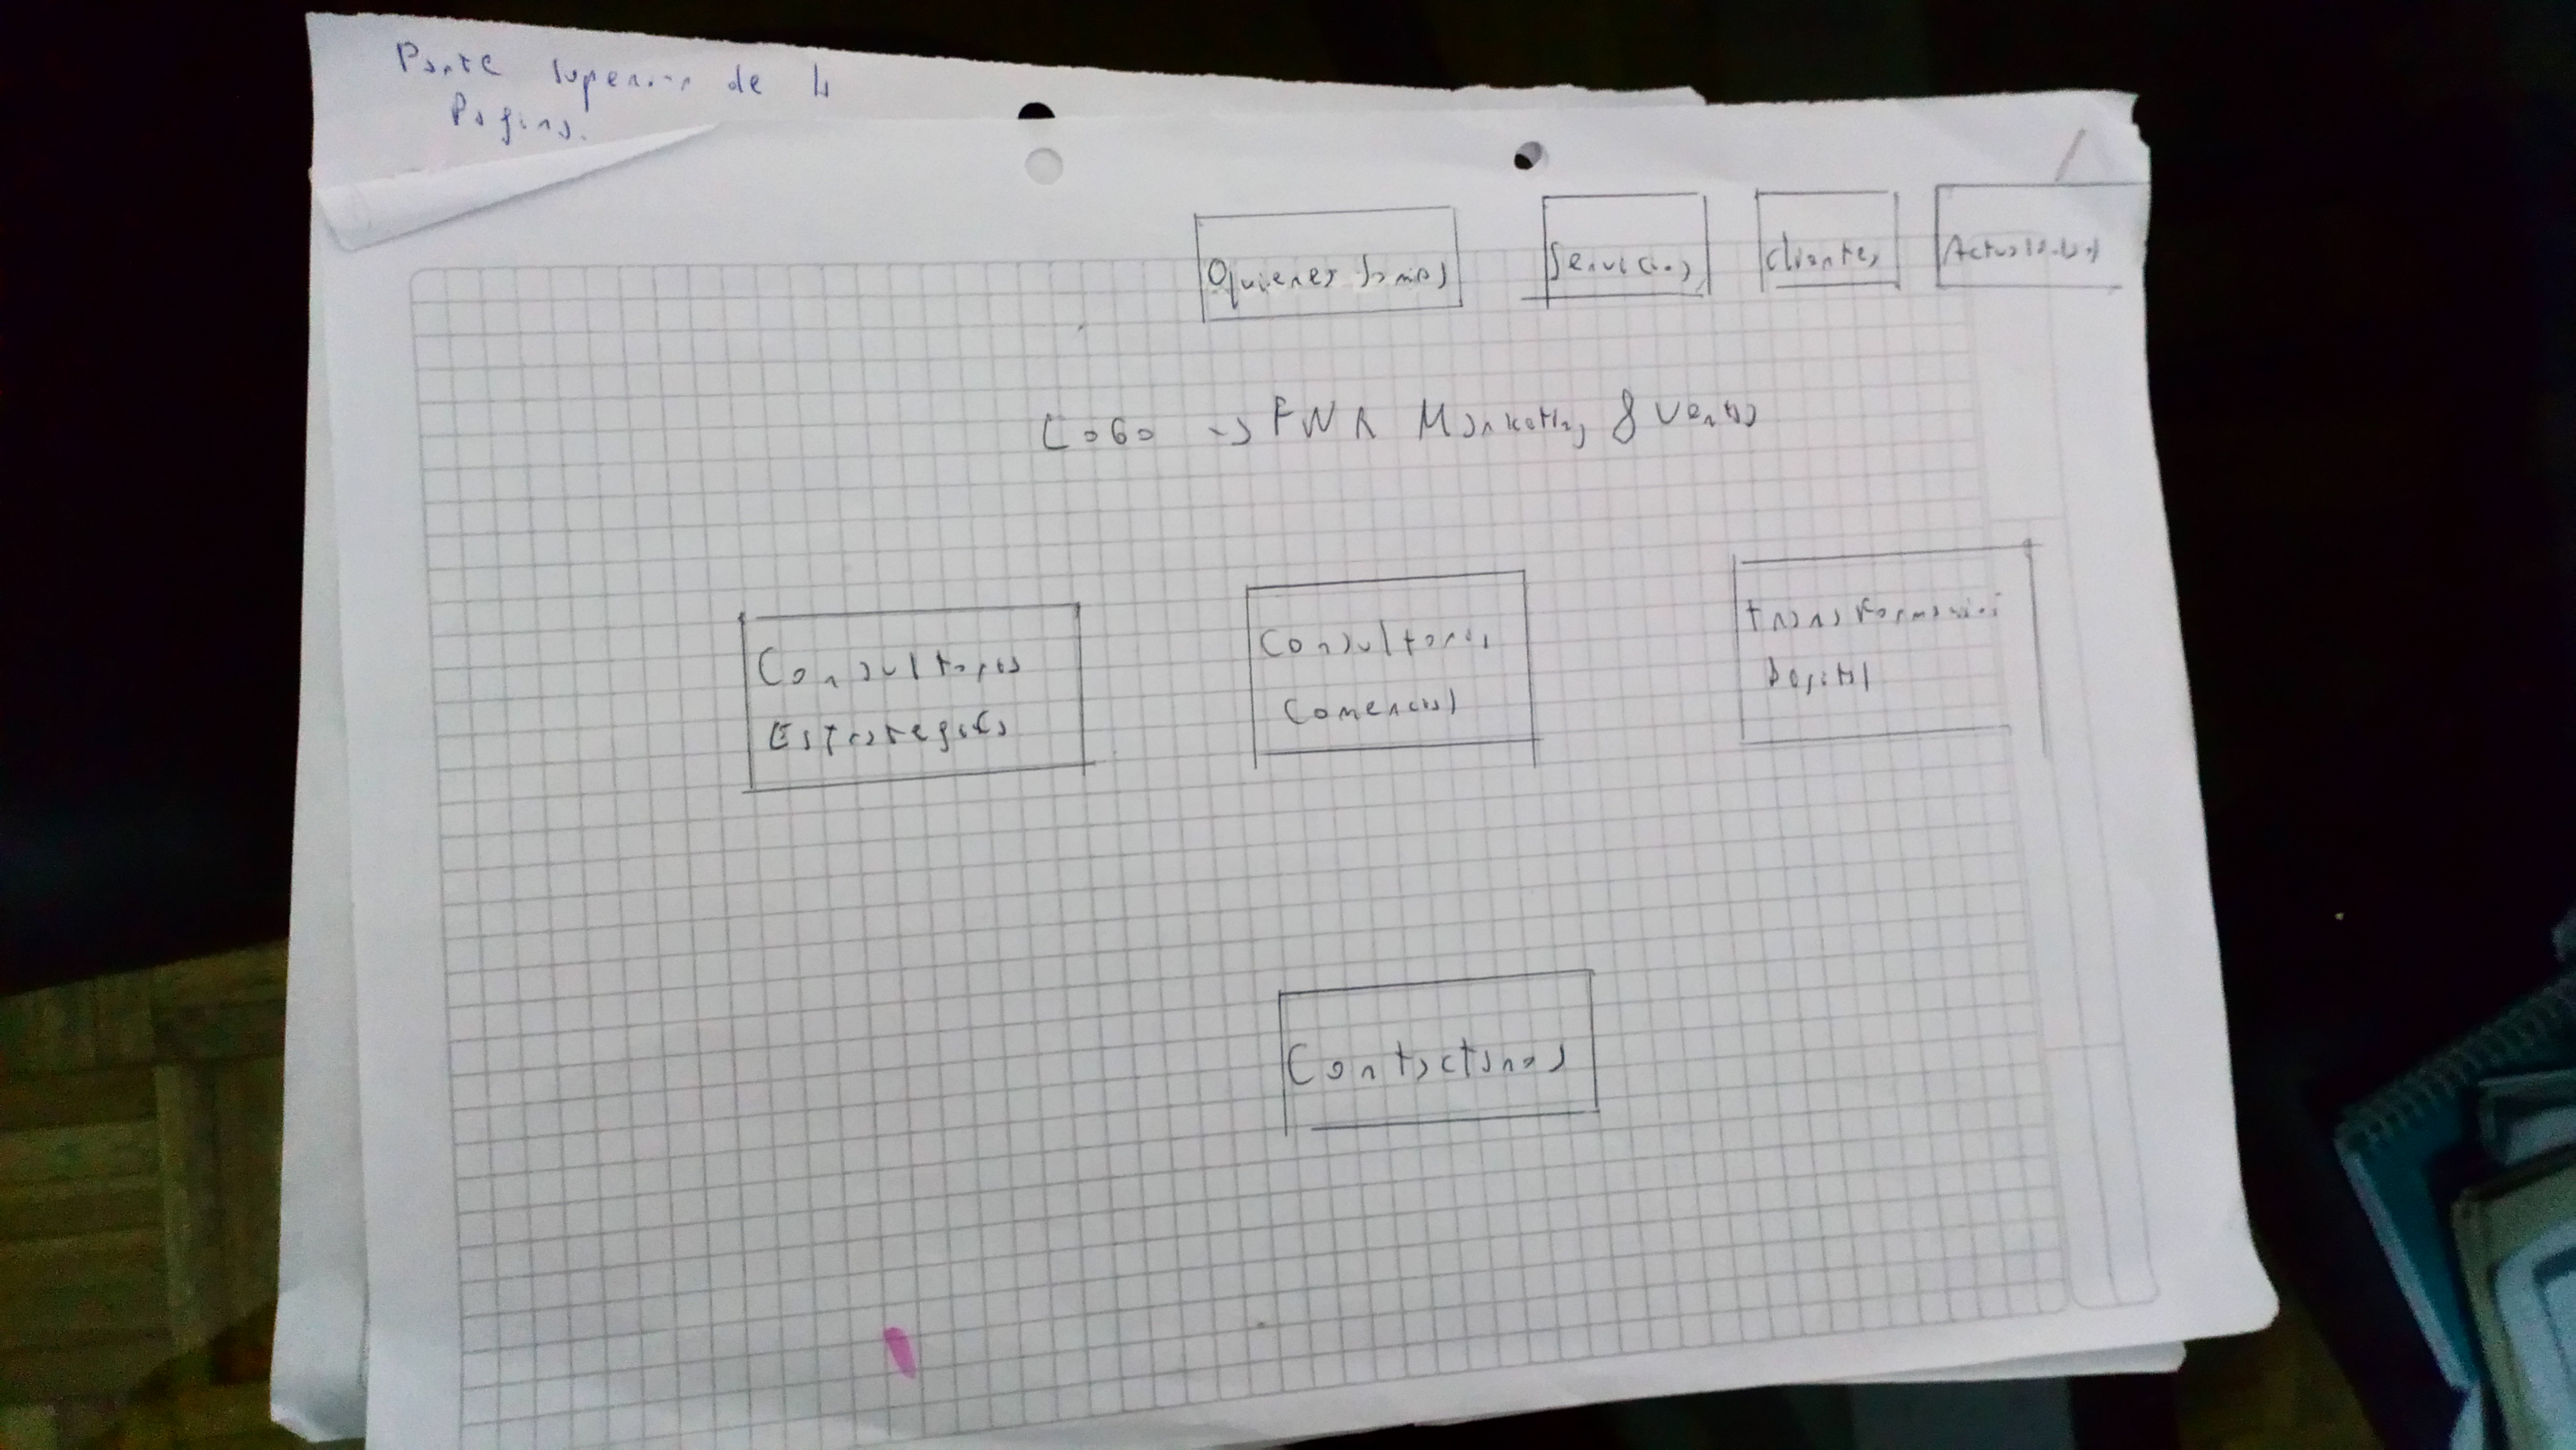 Parte superior de la
Pagina.
Quienes Somos
Servicios
Clientes
Actualidad
LOGO -> PWR Marketing & Ventas
Consultoria
Estrategica
Consultoria
Comercial
Transformacion
Digital
Contactanos